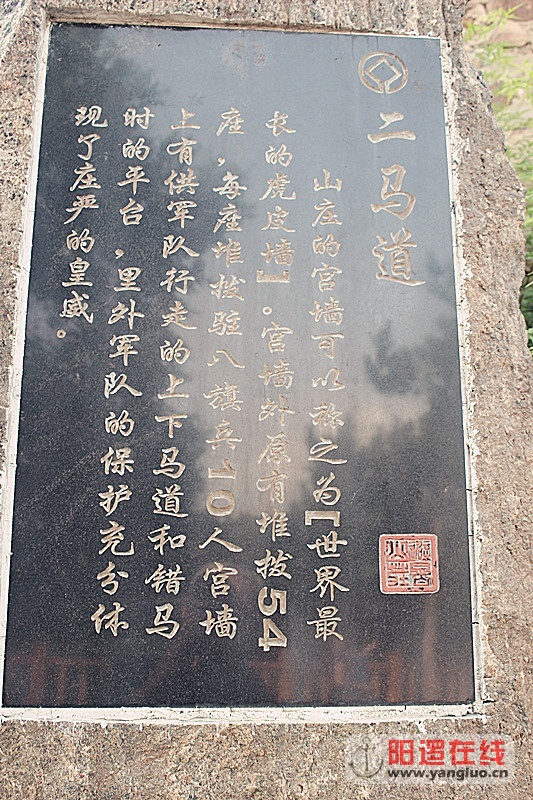 二马道
山庄的宫墙可以称之为[世界最
长的虎皮墙]。宫墙外原有堆拨54
座，每座堆拨驻八旗兵10人宫墙
上有供军队行走的上下马道和错马
时的平台，里外军队的保护充分体
现了庄严的皇威。
阳逻在线
www.yangluo.cn